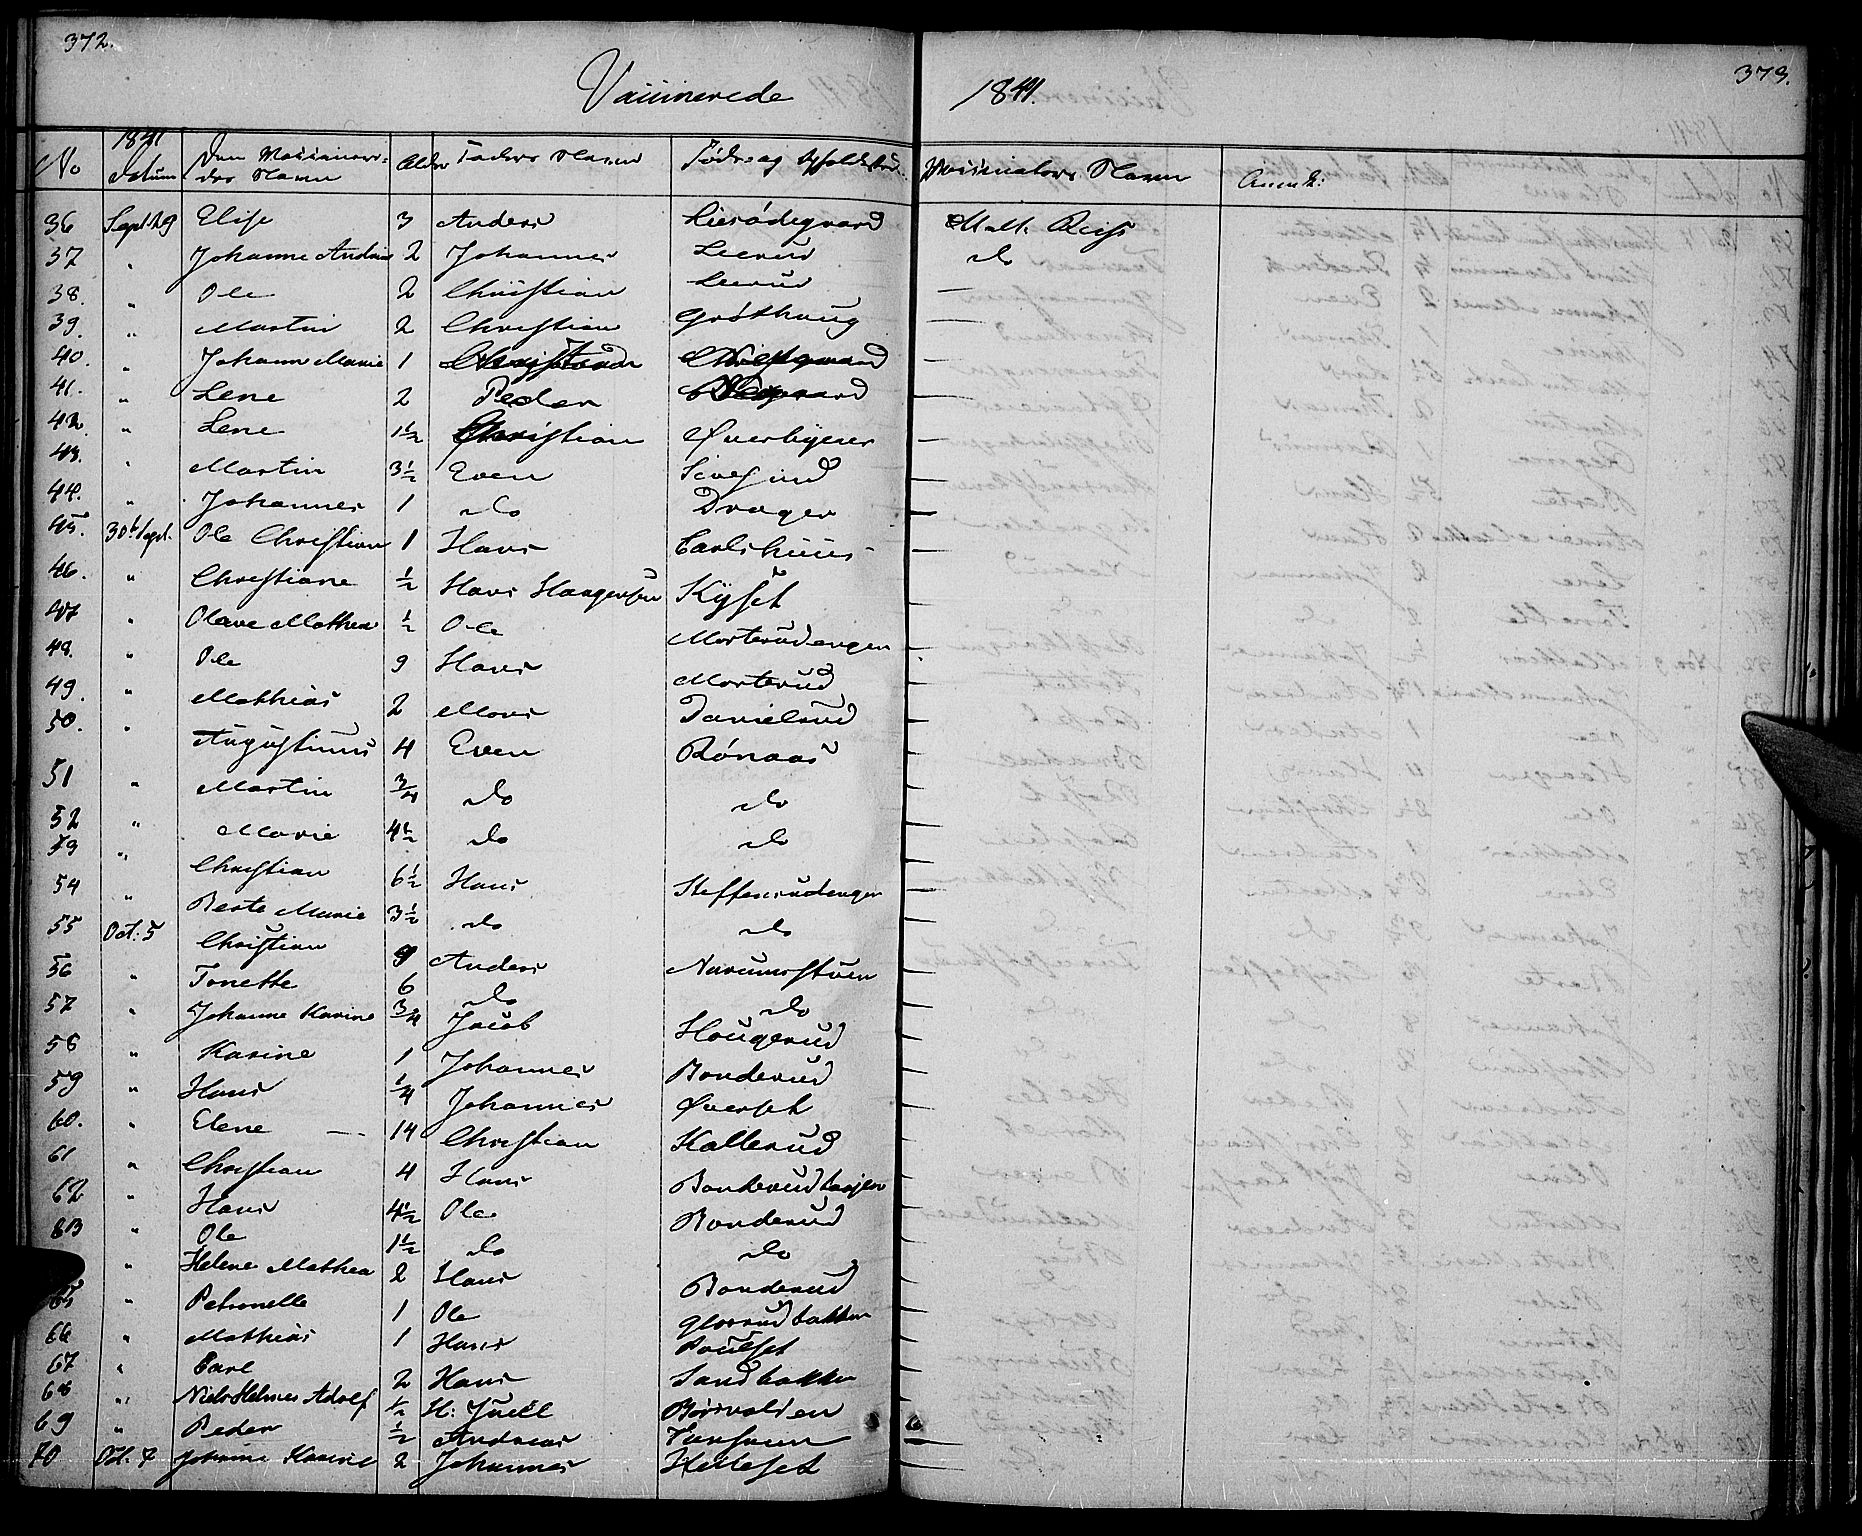 372.
373.
Vaccinerede 1841.
No 1841 Datum Den Vaccineredes Navn Alder Faders Navn Føds og Opholdssted Vaccinators Navn Anmk:
36 Sept. 29 Elise 3 Anders Math. Reiss
37 " Johanne Andrea 2 Johannes Leerud do
38. " Ole 2 Christian Leerud —
39. " Martin 2 Christian Grøthaug —
40. " Johanne Marie 1 —
41. " Lene 2 Peder —
42. " Lene 1½ Christian Øverbyeeier —
43. " Martin 3½ Even —
44. " Johannes 1 do Drager —
45. 30te Sept. Ole Christian 1 Hans Carlshuus —
46. " Christiane ½ Hans Haagensen Kysset —
47 " Olave Mathea ½ Ole Morterudengen —
48. " Ole 9 Hans Morterud —
49. " Mathias 2 Mons Danielsrud —
50. " Augustinus 4 Even Rønaas —
51 " Martin ¾ do do —
52 " Marie 4½ do do —
53 " Christian 6½ Hans Steffensrudengen —
54 " Berte Marie 3½ do do —
55 Oct: 5 Christian 9 Anders Narumsstuen —
56 " Tonette 6 do do —
57 " Johanne Karine ¾ Jacob Hougerud —
58 " Karine 1 Johannes Bonderud —
59 " Hans ¼ Johannes Øverset —
60. " Elene — 14 Christian Kallerud —
61 " Christian 4 Hans —
62 " Hans 4½ Ole Bonderud —
63 " Ole 1½ do do —
" Helene Mathea 2 Hans Bonderud —
65 " Petronelle 1 Ole Glorudbakken —
66 " Mathias 1 Hans Poulset —
67 " Carl 2 Hans Sandbakken —
68 " Niels Helmer Adolf ½ H: Juell —
69 " Peder ½ Andreas —
70 Oct. 7 Johanne Karine 2 Johannes Helleset —